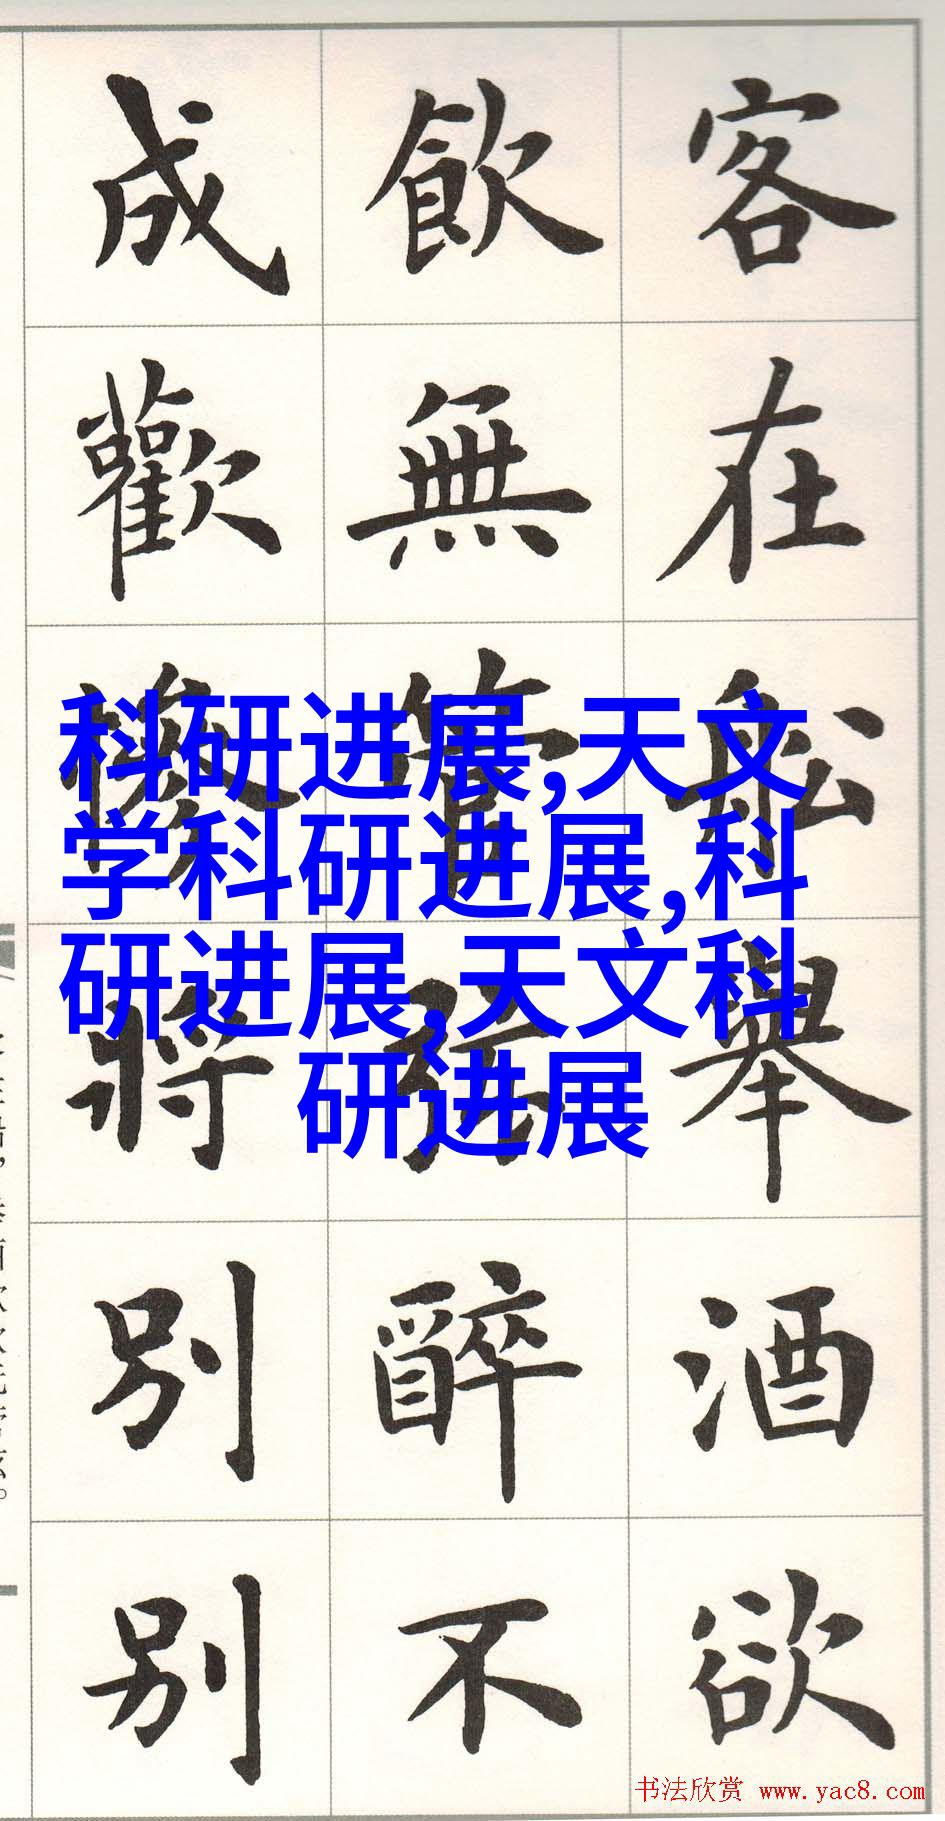 客在舩舉酒欲
飲無管弦醉不
成歡慘將別別
科研进展,天文
学科研进展,科
研进展,天文科
研进展
书法欣赏 www.yac8.com